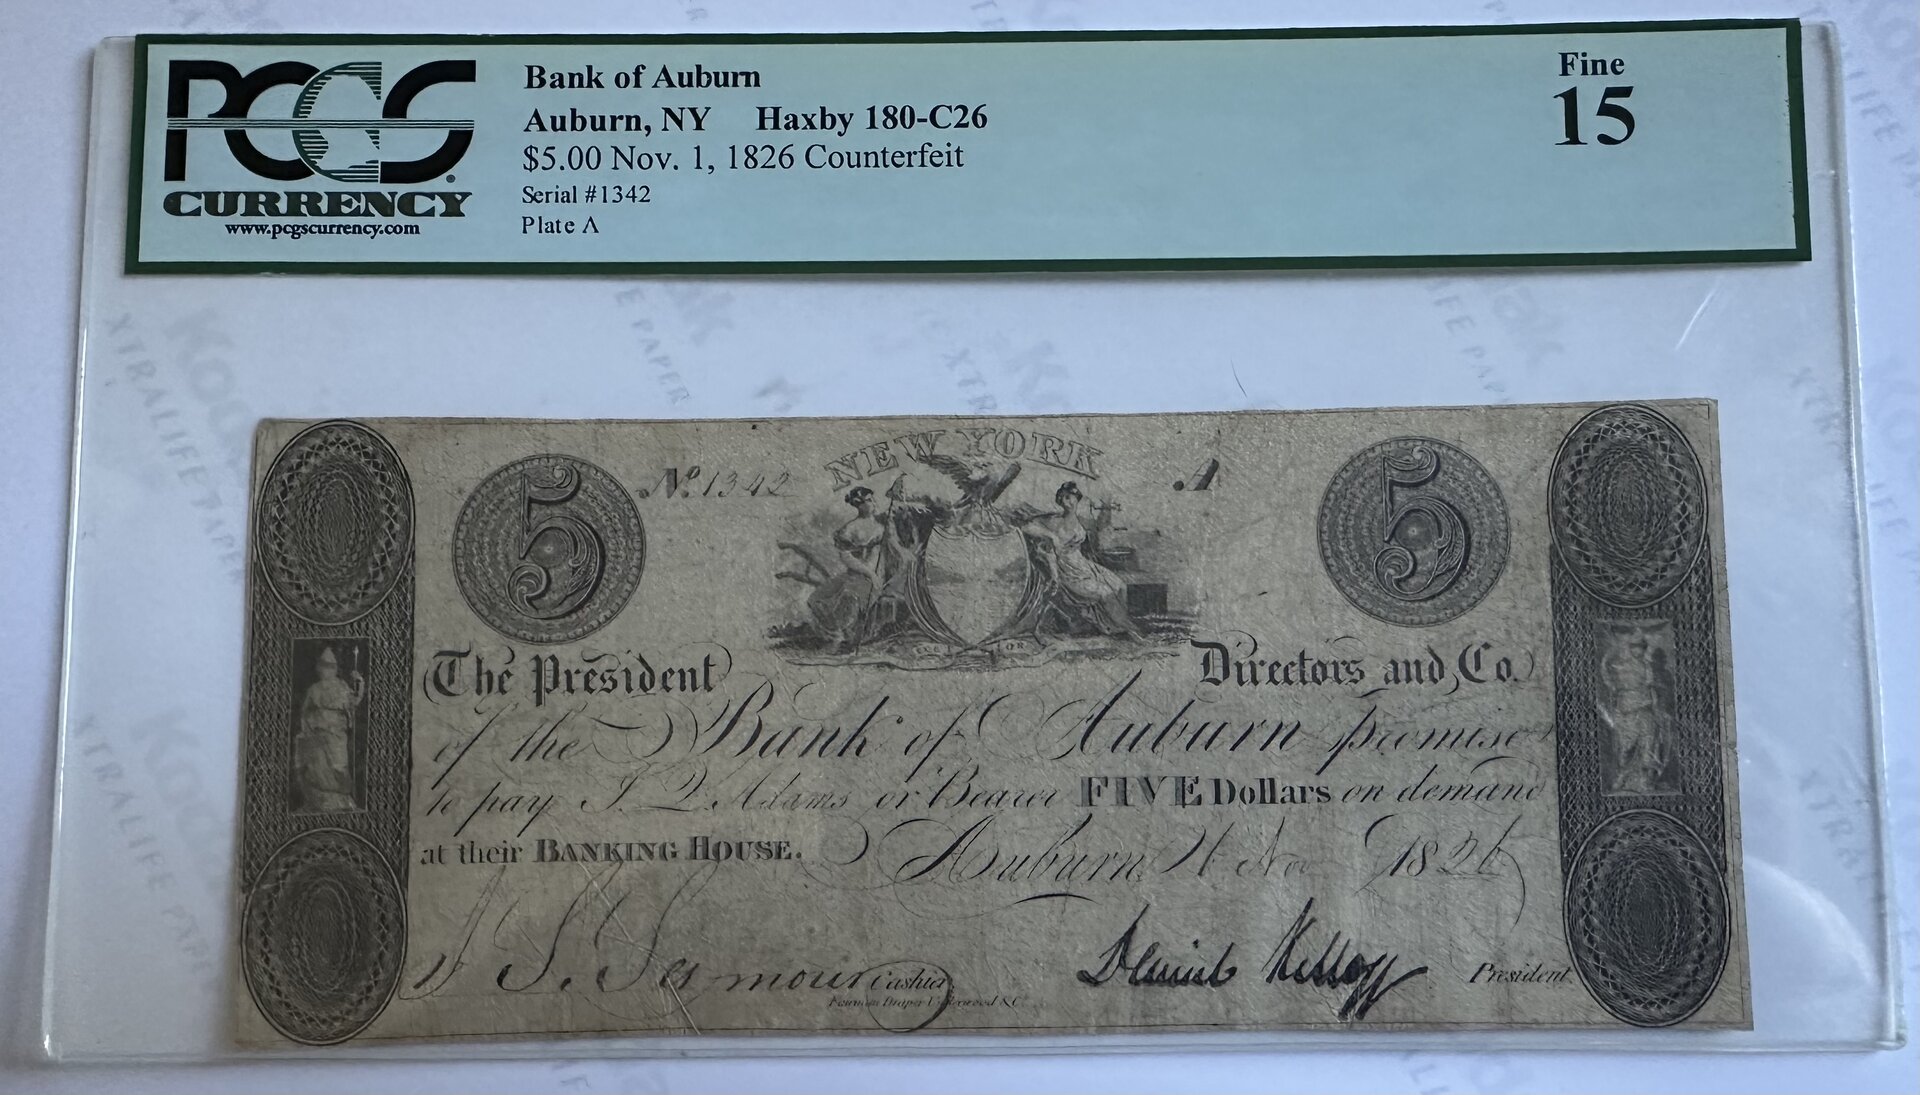 PCGS
CURRENCY
www.pcgscurrency.com
Bank of Auburn
Auburn, NY Haxby 180-C26
$5.00 Nov. 1, 1826 Counterfeit
Serial #1342
Plate A
Fine
15
NEW YORK
5 No. 1342 A 5
The President Directors and Co.
of the Bank of Auburn promise
to pay J. Q. Adams or Bearer FIVE Dollars on demand
at their BANKING HOUSE. Auburn Nov 1826
Seymour Cashier Daniel Kellogg President
Draper Underwood & Co
Kodak
XTRALIFE PAPER